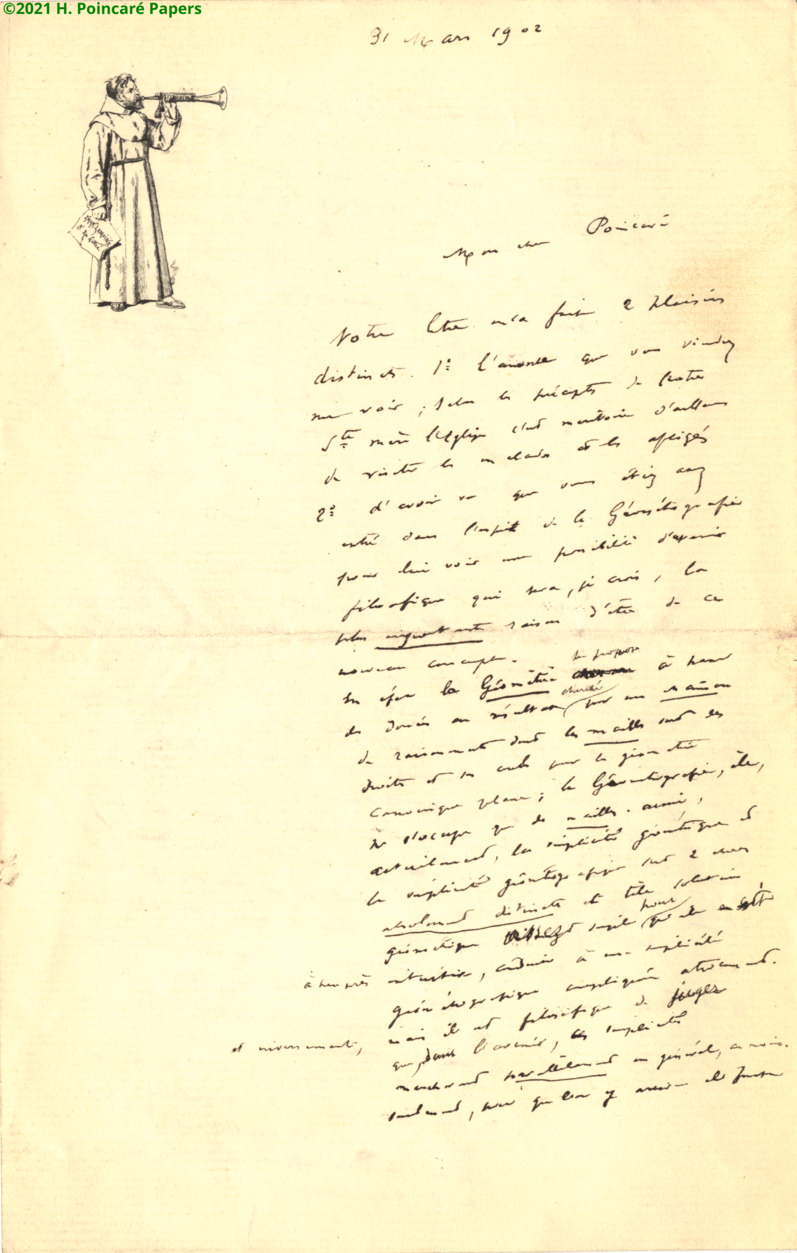 ©2021 H. Poincaré Papers
31 Mars 1902
Mon cher Poincaré
Votre lettre m'a fait 2 plaisirs
distincts. 1º l'annonce que vous viendrez
me voir ; selon les préceptes de Notre
Ste mère l'Eglise c'est méritoire d'ailleurs
de visiter les malades et les affligés
2º d'avoir vu que vous étiez assez
entré dans l'esprit de la Géométrografie
pour lui voir une possibilité d'avenir
filosofique qui sera, je crois, la
plus raison d'être de ce
nouveau concept.
En efet la Géométrie se propose à
des données au résultat cherché par un
de raisonnement dont les mailles sont des
droites et des cercles pour la géométrie
canonique plane ; la Géométrografie, èle,
ne s'occupe que des mailles. ainsi,
actuèlement, la simplicité géométrique et
la simplicité géométrografique sont 2 choses
absolument distinctes et tèle solution
géométrique simple pour
à peu près intuitive, conduit à une simplicité
géométrografique compliquée atrocement.
et inversement, mais il est filosofique de juger
que, dans l'avenir, ces simplicités
marcheront parallèlement en général, au moins.
seulement, pour que l'on y arrive il faut